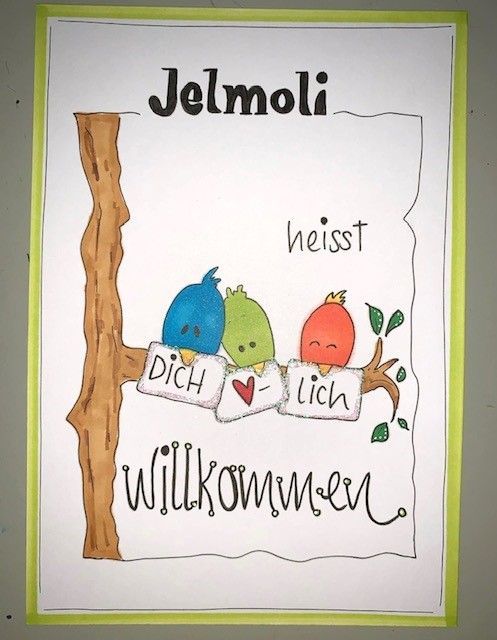 Jelmoli
heisst
DICH ♥- lich
willkommen